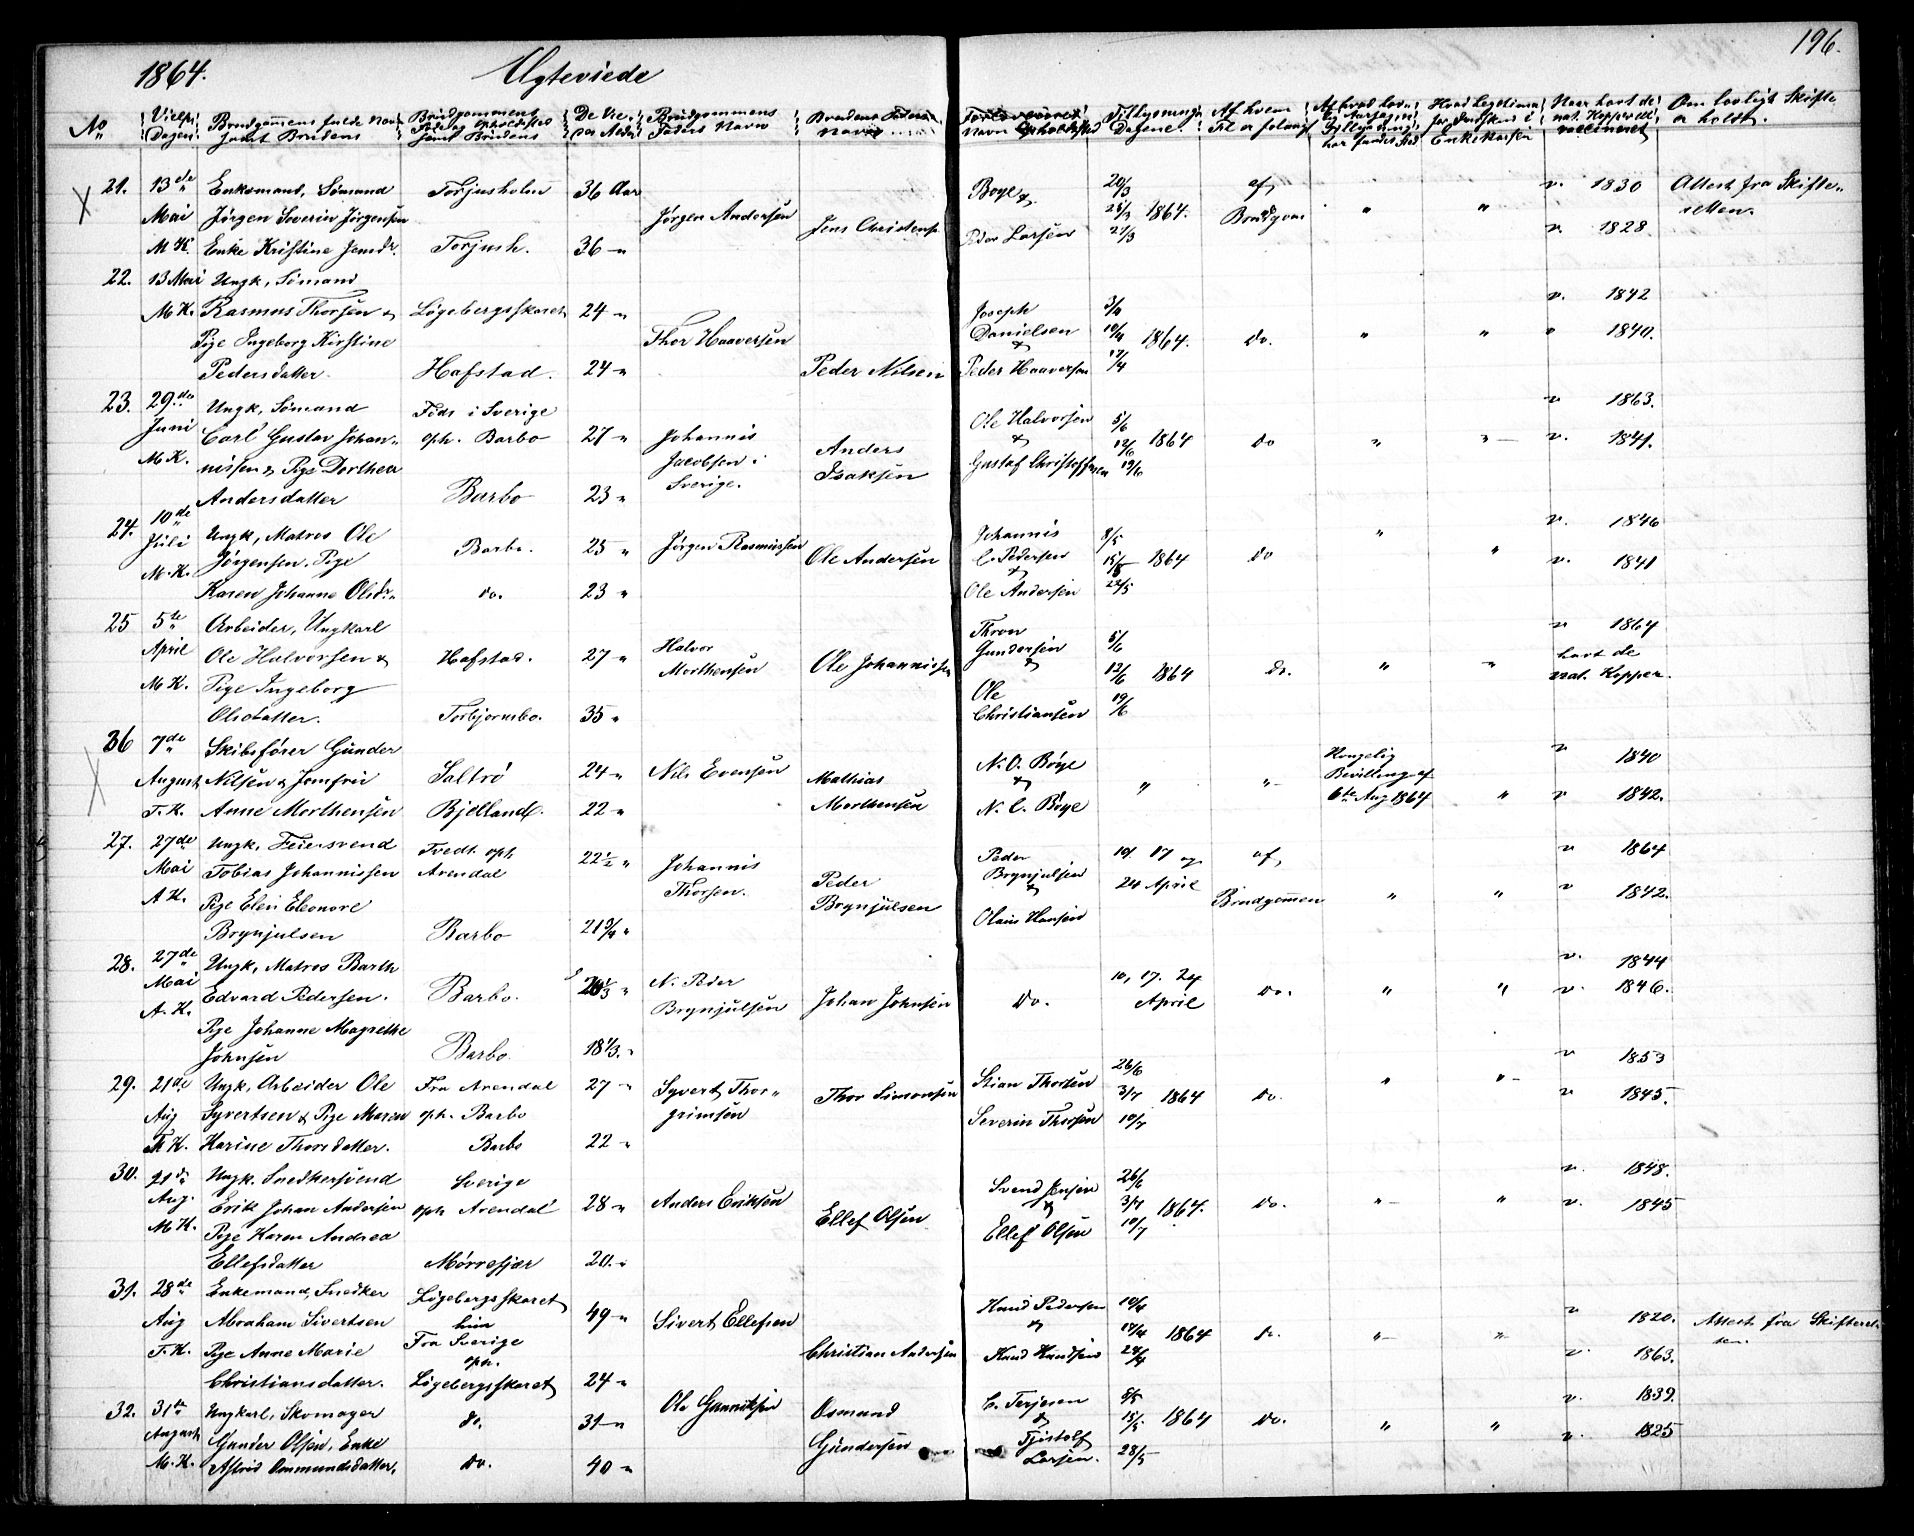 196.
1864. Ægteviede
No
Vielses Dagen
Brudgommens fulde Navn samt Brudens
Brudgommens Føde og Opholdssted samt Brudens
De Vie- des Alder
Brudgommens Faders Navn
Brudens Faders Navn
Forloverens Navn Opholdssted
Tillysnings Dagene.
Af hvem Til er forlangt
Hvad Legitima
Enkekasse
Naar havt de nat. Kopper el. vaccineret
Om lovligt Skifte er holdt.
21. 13de Enkemand, Sømand Torjusholm 36 Aar Boye & 20/3 af v. 1830 Attest fra Skifte-
Mai Jørgen Severin Jørgensen Jørgen Andersen Jens Christens. 1864. Brudgom " " retten.
M K. Enke Kristine Jensdr. Torjush. 36 " Peder Larsen 27/3 v. 1828
22. 13 Mai Ungk, Sømand
M K. Rasmus Thorsen & Løgebergsskaret 24 " Joseph 3/4 v. 1842
Pige Ingeborg Kirstine Thor Haaversen Danielsen 10/4 1864. do. " " v 1840.
Pedersdatter. Hafstad. 24 " Peder Nilsen & Peder Haaversen 17/4
23. 29de Ungk, Sømand Føds i Sverige Ole Halvorsen 5/6 v 1863.
Juni Carl Gustav Johan- oph. Barbo 27 " Johannis Anders & 12/6 1864 do " " v. 1841.
M K. nissen & Pige Dorthea Jacobsen i Isaksen Gustaf Christoffersen 19/6
Andersdatter Barbo 23 " Sverige.
24. 10de Ungk, Matros Ole Johannis 8/5 " v. 1846
Juli Jørgensen. Pige Barbo. 25 " Jørgen Rasmussen Ole Andersen C. Pedersen 15/5 1864 do " v. 1841
M. K. Karen Johanne Olsdr. do. 23 " & Ole Andersen 22/5
25 5te Arbeider, Ungkarl Thron 5/6 v 1864
April Ole Halvorsen & Hafstad. 27 " Halvor Ole Johannissen Gundersen havt de
M K. Pige Ingeborg Morthensen & 12/6 1864 do. " " nat. Kopper.
Olsdatter. Torbjornsbo. 35 " Ole Christiansen 19/6
36 7de Skibsfører Günder Kongelig v 1840
August Nilsen & Jomfru Saltrø 24 " Nils Evensen Mathias N. O. Bøye " " Bevilling af
T. K. Anne Morthensen Bjelland. 22 " Morthensen & N. C. Bøye 6te Aug 1864 " v 1842.
27. 27de Ungk, Feiersvend Tvedt. oph. 22½ " Peder 10. 17 og af v 1864
Mai Tobias Johannissen Arendal Johannis Peder Brynjulsen 24 April Brudgommen " " v 1842.
A K. Pige Elen Eleonore Thorsen. Brynjulsen &
Brynjulsen Barbo 21¾ " Olaus Hansen
28. 27de Ungk, Matros Barth v. 1844
Mai Edvard Pedersen. Barbo. N. Peder Johan Johnsen do. 10, 17. 24 do. " " v. 1846.
A. K. Pige Johanne Magrethe Brynjulsen April
Johnsen Barbo 18⅓. " v 1853
29. 21de Ungk, Arbeider Ole Fra Arendal 27 " Syvert Thor- Thor Simonsen Stian Thorsen 26/6 " "
Aug Syvertsen & Pige Maren oph. Barbo grimsen 3/7 1864 do. v 1845.
T. K. Karine Thorsdatter. Barbo 22 " Severin Thorsen 10/7
30. 21de Ungk. Snedkersvend Sverige Svend Jensen 26/6 v. 1848.
Aug. Erik Johan Andersen oph Arendal 28 " Anders Eriksen Ellef Olsen & 3/7 1864. do. " " v. 1845
M K. Pige Karen Andrea Ellef Olsen 10/7
Ellefsdatter Mørrefjær 20. "
31. 28de Enkemand, Snedker Løgebergsskaret Knud Pedersen 10/4
Aug Abraham Sivertsen hun 49 " Sivert Ellefsen & 17/4 1864 do. " " v 1820. Attest fra Skifteret-
T. K. Pige Anne Marie Fra Sverige Christian Andersen Knud Knudsen 24/4 v. 1863. ten.
Christiansdatter. oph. Løgebergsskaret 24 "
32. 31te Ungkarl, Skomager do. 31 " Ole Gunnufsen Osmund C. Terjesen 8/5 v. 1839.
August Gunder Olsen, Enke Gündersen & 15/5 1864 do. " " v. 1825
M. K. Astrid Osmundsdatter. do. 40 " Tjøstolf Larsen. 28/5